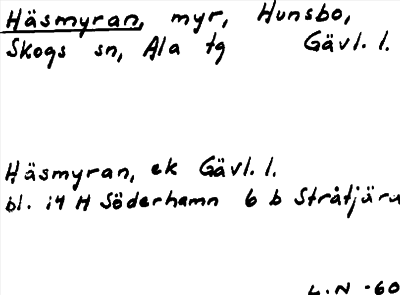 Häsmyran, myr, Hunsbo,
Skogs sn, Ala tg Gävl. l.
Häsmyran, ek Gävl. l.
bl. 14 H Söderhamn 6 b Stråtjära
L.N -60